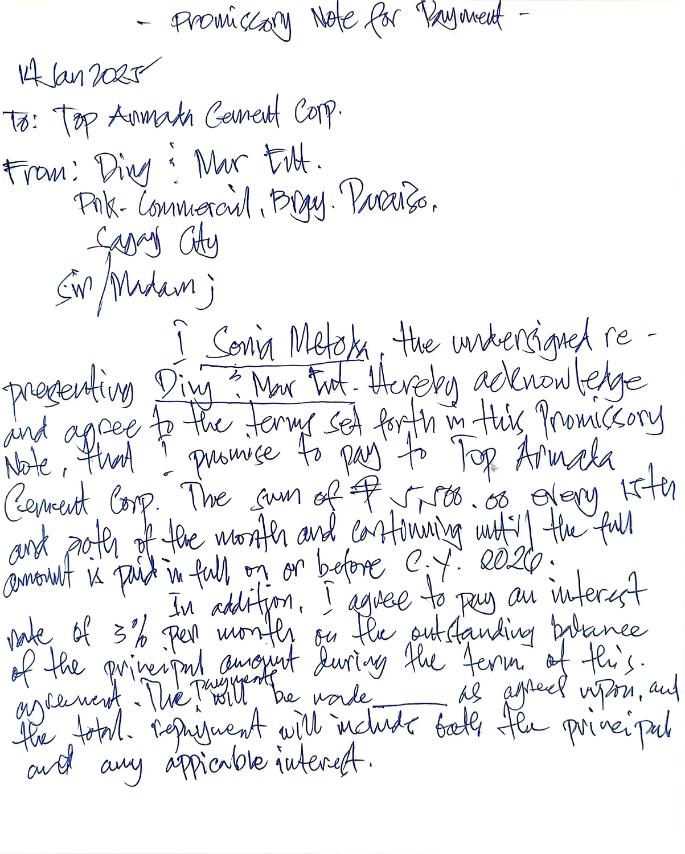 - Promissory Note for Payment -
14 Jan 2025
To: Top Armada Cement Corp.
From: Ding & Mar Ent.
Prk. Commercail, Brgy. Paraiso,
Sagay City
Sir/Madam;
I Sonia Metoka, the undersigned re -
presenting Ding & Mar Ent. thereby acknowledge
and agree to the terms set forth in this Promissory
Note, that I promise to pay to Top Armada
Cement Corp. The sum of ₱ 5,500.00 every 15th
and 30th of the month and continuing until the full
amount is paid in full on or before C.Y. 2026.
In addition, I agree to pay an interest
rate of 3% per month on the outstanding balance
of the principal amount during the term of this.
agreement. The payments will be made ______ as agreed upon, and
the total. repayment will include both the principal
and any appicable interest.